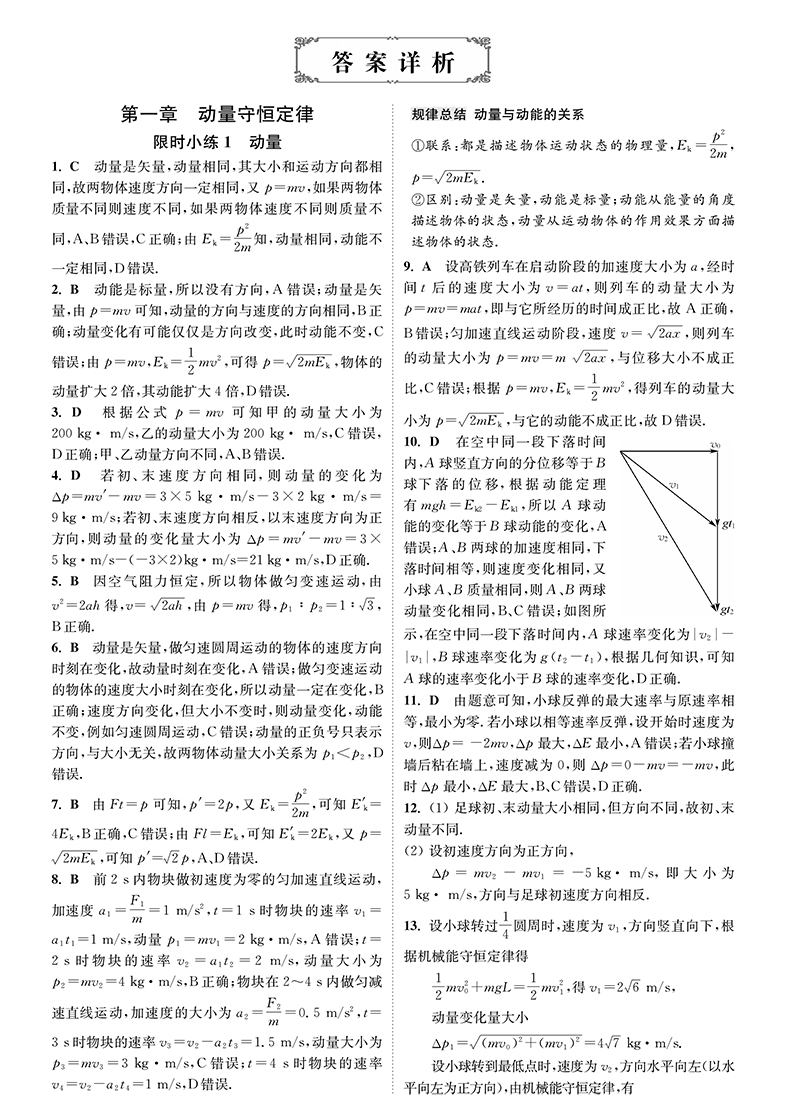 答案详析
第一章 动量守恒定律
限时小练1 动量
1. C 动量是矢量,动量相同,其大小和运动方向都相
同,故两物体速度方向一定相同,又 p=mv,如果两物体
质量不同则速度不同,如果两物体速度不同则质量不
同,A、B错误,C正确;由 Eₖ=p²/2m知,动量相同,动能不
一定相同,D错误.
2. B 动能是标量,所以没有方向,A错误;动量是矢
量,由 p=mv 可知,动量的方向与速度的方向相同,B正
确;动量变化有可能仅仅是方向改变,此时动能不变,C
错误;由 p=mv,Eₖ=1/2mv²,可得 p=√2mEₖ,物体的
动量扩大2倍,其动能扩大4倍,D错误.
3. D 根据公式 p=mv 可知甲的动量大小为
200 kg· m/s,乙的动量大小为200 kg· m/s,C错误,
D正确;甲、乙动量方向不同,A、B错误.
4. D 若初、末速度方向相同,则动量的变化为
Δp=mv′-mv=3×5 kg·m/s-3×2 kg·m/s=
9 kg·m/s;若初、末速度方向相反,以末速度方向为正
方向,则动量的变化量大小为 Δp=mv′-mv=3×
5 kg·m/s-(-3×2)kg·m/s=21 kg·m/s,D正确.
5. B 因空气阻力恒定,所以物体做匀变速运动,由
v²=2ah 得,v=√2ah,由 p=mv 得,p₁∶p₂=1∶√3,
B正确.
6. B 动量是矢量,做匀速圆周运动的物体的速度方向
时刻在变化,故动量时刻在变化,A错误;做匀变速运动
的物体的速度大小时刻在变化,所以动量一定在变化,B
正确;速度方向变化,但大小不变时,则动量变化,动能
不变,例如匀速圆周运动,C错误;动量的正负号只表示
方向,与大小无关,故两物体动量大小关系为 p₁<p₂,D
错误.
7. B 由 Ft=p 可知,p′=2p,又 Eₖ=p²/2m,可知 E′ₖ=
4Eₖ,B正确,C错误;由 Fl=Eₖ,可知 E′ₖ=2Eₖ,又 p=
√2mEₖ,可知 p′=√2p,A、D错误.
8. B 前2 s内物块做初速度为零的匀加速直线运动,
加速度 a₁=F₁/m=1 m/s²,t=1 s时物块的速率 v₁=
a₁t₁=1 m/s,动量 p₁=mv₁=2 kg·m/s,A错误;t=
2 s时物块的速率 v₂=a₁t₂=2 m/s,动量大小为
p₂=mv₂=4 kg·m/s,B正确;物块在2~4 s内做匀减
速直线运动,加速度的大小为 a₂=F₂/m=0.5 m/s²,t=
3 s时物块的速率 v₃=v₂-a₂t₃=1.5 m/s,动量大小为
p₃=mv₃=3 kg·m/s,C错误;t=4 s时物块的速率
v₄=v₂-a₂t₄=1 m/s,D错误.
规律总结 动量与动能的关系
①联系:都是描述物体运动状态的物理量,Eₖ=p²/2m,
p=√2mEₖ.
②区别:动量是矢量,动能是标量;动能从能量的角度
描述物体的状态,动量从运动物体的作用效果方面描
述物体的状态.
9. A 设高铁列车在启动阶段的加速度大小为 a,经时
间 t 后的速度大小为 v=at,则列车的动量大小为
p=mv=mat,即与它所经历的时间成正比,故A正确,
B错误;匀加速直线运动阶段,速度 v=√2ax,则列车
的动量大小为 p=mv=m √2ax,与位移大小不成正
比,C错误;根据 p=mv,Eₖ=1/2mv²,得列车的动量大
小为 p=√2mEₖ,与它的动能不成正比,故D错误.
10. D 在空中同一段下落时间
内,A球竖直方向的分位移等于B
球下落的位移,根据动能定理
有 mgh=Eₖ₂-Eₖ₁,所以A球动
能的变化等于B球动能的变化,A
错误;A、B两球的加速度相同,下
落时间相等,则速度变化相同,又
小球A、B质量相同,则A、B两球
动量变化相同,B、C错误;如图所
v₀
v₁
gt₁
v₂
gt₂
示,在空中同一段下落时间内,A球速率变化为|v₂|-
|v₁|,B球速率变化为 g(t₂-t₁),根据几何知识,可知
A球的速率变化小于B球的速率变化,D正确.
11. D 由题意可知,小球反弹的最大速率与原速率相
等,最小为零.若小球以相等速率反弹,设开始时速度为
v,则Δp=-2mv,Δp最大,ΔE最小,A错误;若小球撞
墙后粘在墙上,速度减为0,则 Δp=0-mv=-mv,此
时Δp最小,ΔE最大,B、C错误,D正确.
12. (1) 足球初、末动量大小相同,但方向不同,故初、末
动量不同.
(2) 设初速度方向为正方向,
Δp=mv₂-mv₁=-5 kg· m/s,即大小为
5 kg· m/s,方向与足球初速度方向相反.
13. 设小球转过1/4圆周时,速度为 v₁,方向竖直向下,根
据机械能守恒定律得
1/2mv₀²+mgL=1/2mv₁²,得 v₁=2√6 m/s,
动量变化量大小
Δp₁=√(mv₀)²+(mv₁)²=4√7 kg·m/s.
设小球转到最低点时,速度为 v₂,方向水平向左(以水
平向左为正方向),由机械能守恒定律,有